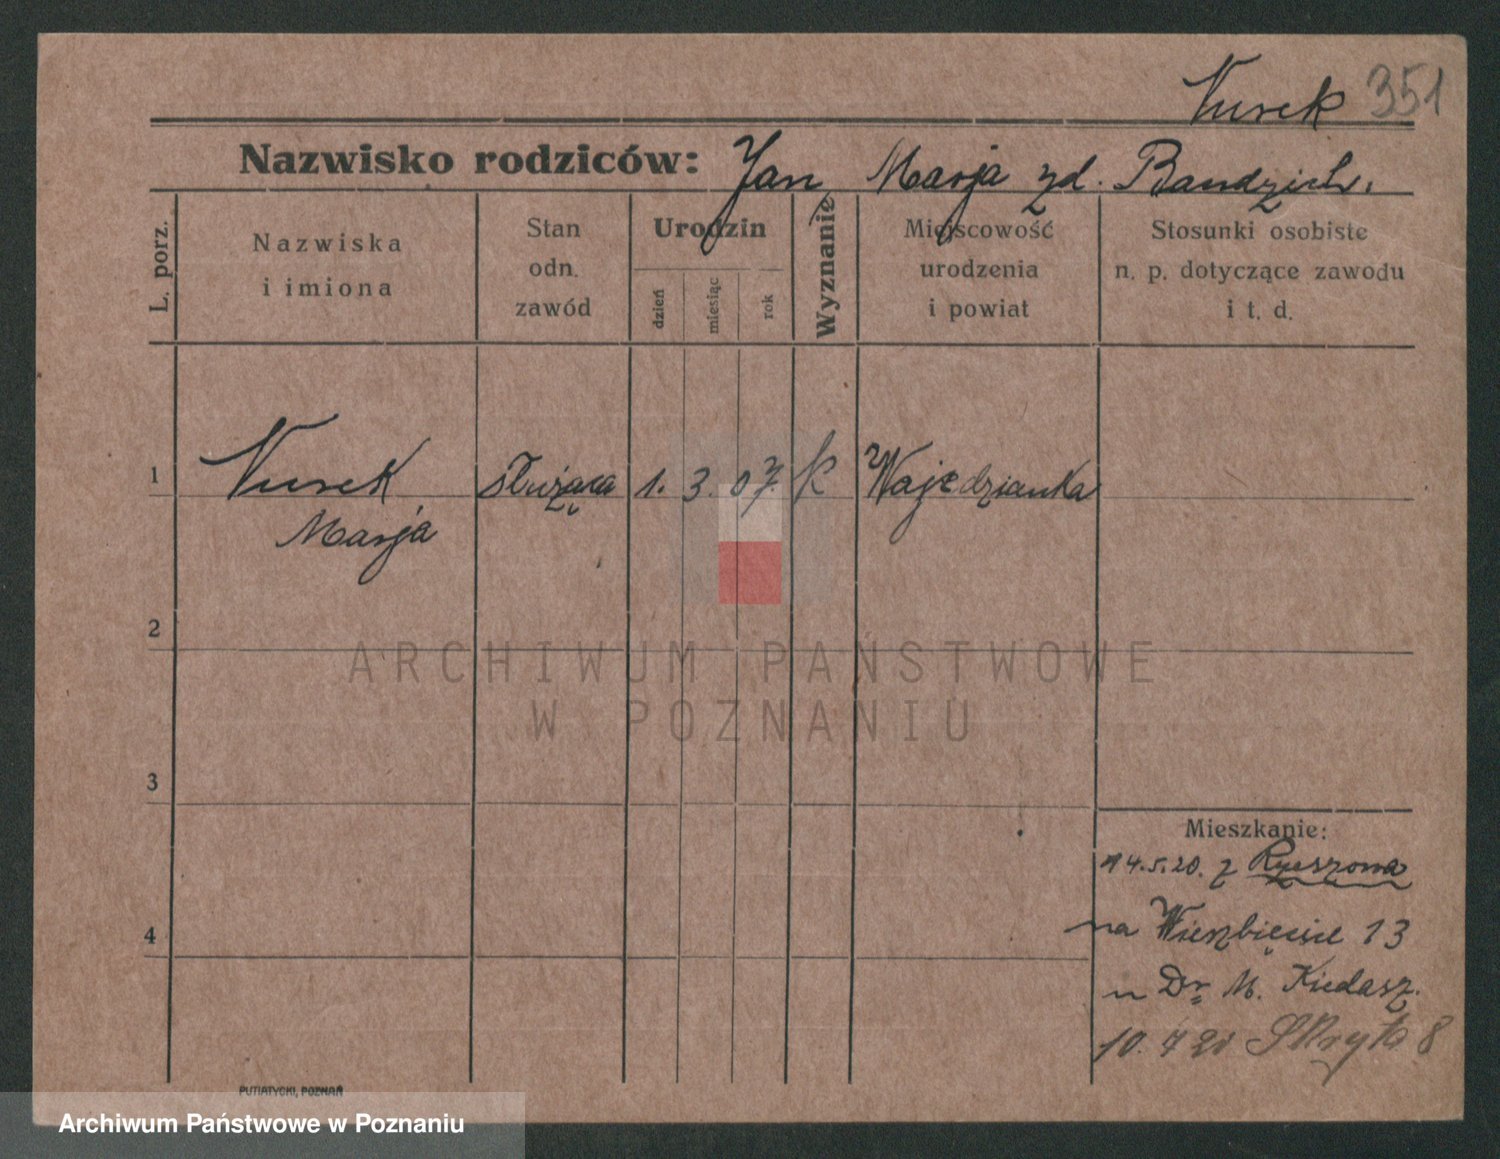 Nurek 351
Nazwisko rodziców: Jan Marja zd. Bandzich.
L. porz.
Nazwiska
i imiona
Stan
odn.
zawód
Urodzin
dzień
miesiąc
rok
Wyznanie
Miejscowość
urodzenia
i powiat
Stosunki osobiste
n. p. dotyczące zawodu
i t. d.
1 Nurek służąca 1. 3. 07. k
Marja
2
ARCHIWUM PAŃSTWOWE
W POZNANIU
3
Mieszkanie:
14.5.20. z Rzeszowa
4
na 13
u Dr. M. Kiedasz.
10. 7 20 Skryta 8
PUTIATYCKI, POZNAŃ
Archiwum Państwowe w Poznaniu